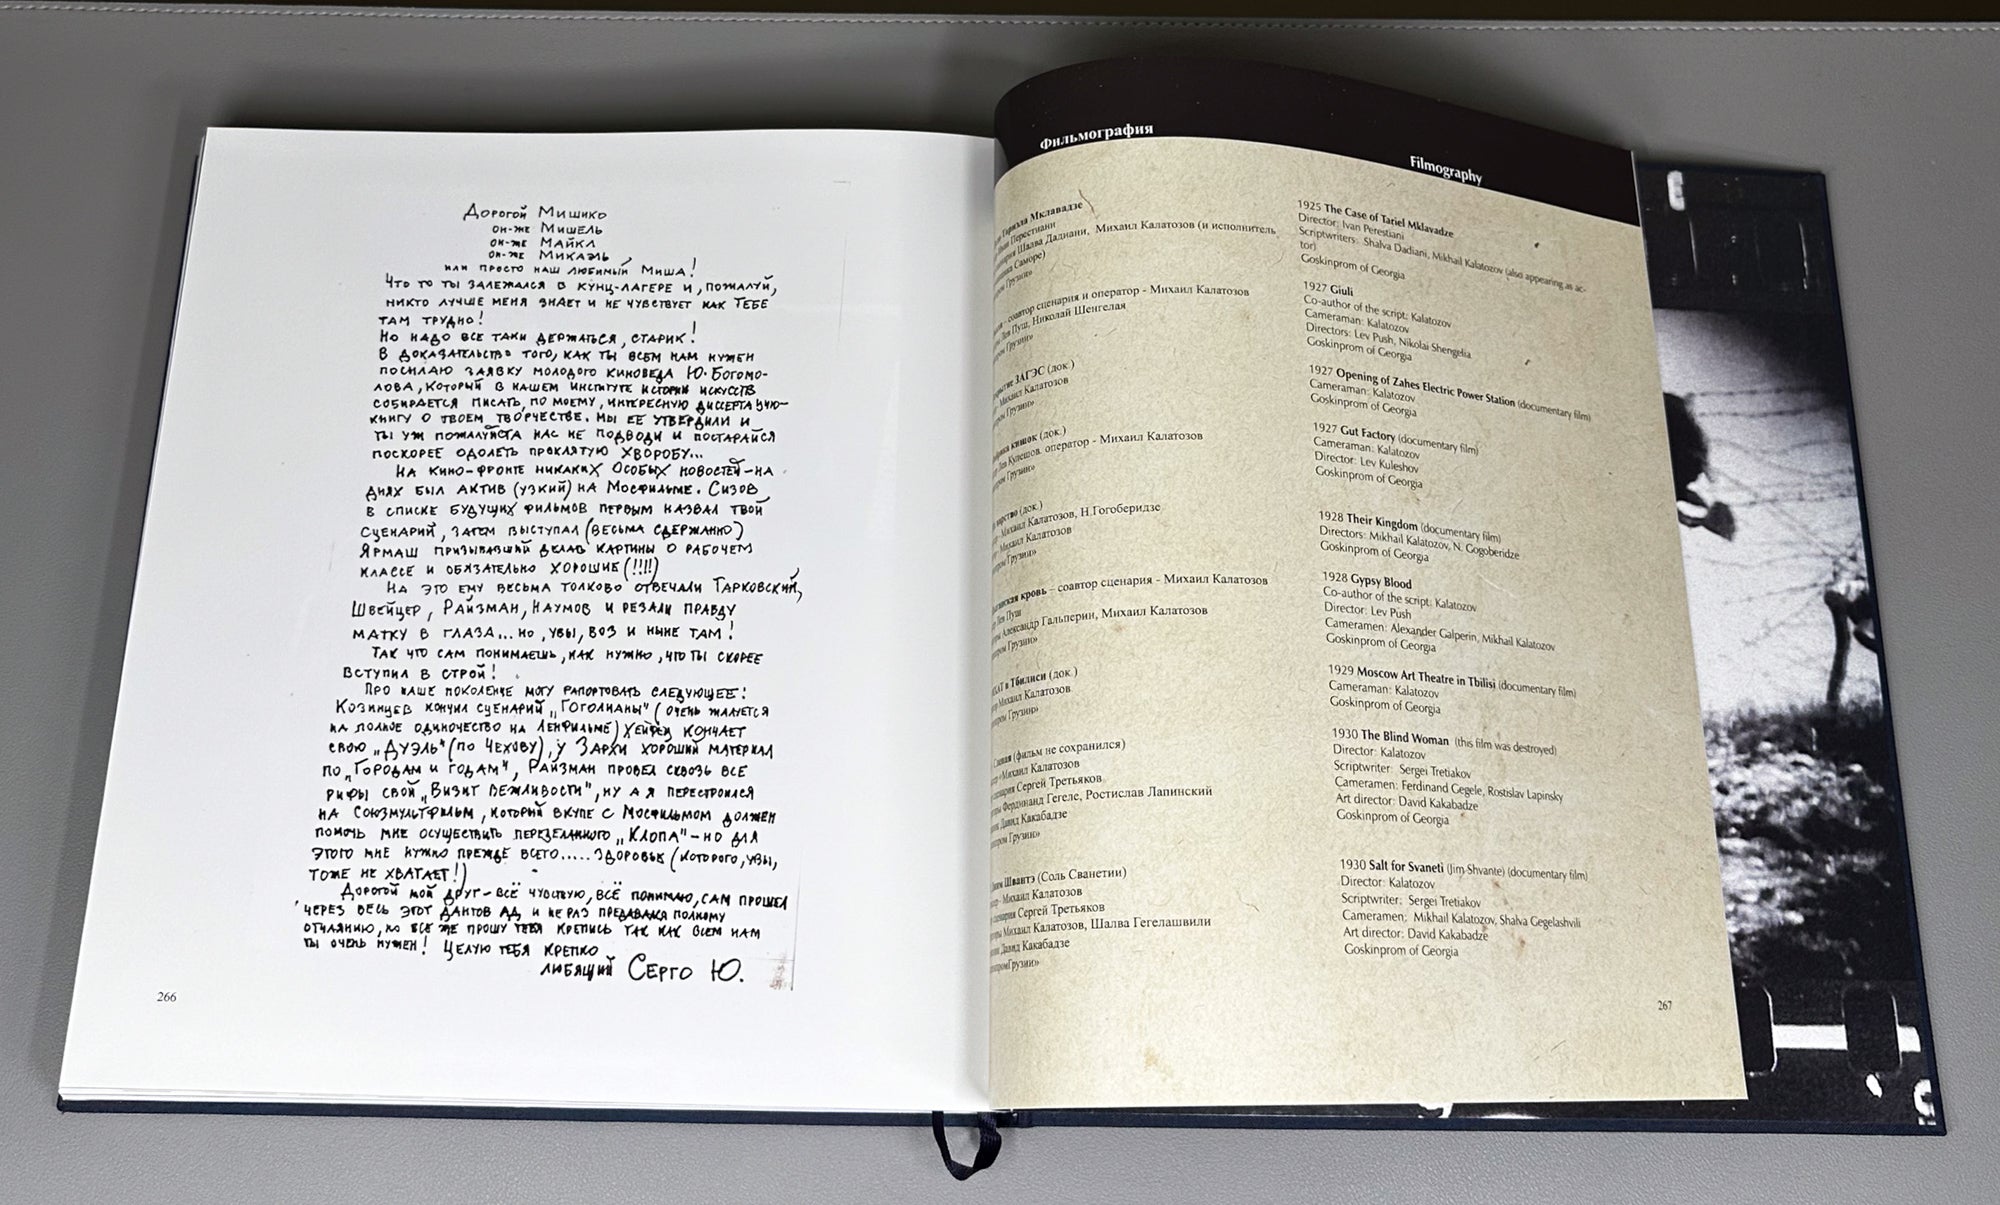 Дорогой Мишико
он-же Мишель
он-же Майкл
он-же Микаэль,
или просто наш любимый Миша!
Что то ты залежался в кунц-лагере и, пожалуй,
никто лучше меня знает и не чувствует как тебе
там трудно!
Но надо все таки держаться, старик!
В доказательство того, как ты всем нам нужен
посылаю заявку молодого киноведа Ю. Богомо-
лова, который в нашем институте истории искусств
собирается писать, по моему, интересную диссертацию-
книгу о твоем творчестве. Мы ее утвердили и
ты уж пожалуйста нас не подводи и постарайся
поскорее одолеть проклятую хворобу...
На кино-фронте никаких особых новостей-на
днях был актив (узкий) на Мосфильме. Сизов
в списке будущих фильмов первым назвал твой
сценарий, затем выступал (весьма сдержанно)
Ярмаш призывавший делать картины о рабочем
классе и обязательно хорошие (!!!!)
На это ему весьма толково отвечали Тарковский,
Швейцер, Райзман, Наумов и резали правду
матку в глаза... но, увы, воз и ныне там!
Так что сам понимаешь, как нужно, что ты скорее
вступил в строй!
Про наше поколение могу рапортовать следующее:
Козинцев кончил сценарий „Гоголианы" (очень жалуется
на полное одиночество на Ленфильме) Хейфец кончает
свою „Дуэль" (по Чехову), у Зархи хороший материал
по „Городам и годам", Райзман провел сквозь все
рифы свой „Визит вежливости", ну а я перестроился
на Союзмультфильм, который вкупе с Мосфильмом должен
помочь мне осуществить переделанного „Клопа"-но для
этого мне нужно прежде всего..... здоровье (которого, увы,
тоже не хватает!)
Дорогой мой друг-всё чувствую, всё понимаю, сам прошел
через весь этот дантов ад и не раз предавался полному
отчаянию, но все же прошу тебя крепись так как всем нам
ты очень нужен! Целую тебя крепко
любящий Серго Ю.
266
Фильмография
Мклавадзе
Перестиани
Шалва Дадиани, Михаил Калатозов (и исполнитель
Саморе)
Грузии»
- соавтор сценария и оператор - Михаил Калатозов
Лев Пуш, Николай Шенгелая
Грузии»
ЗАГЭС (док.)
Михаил Калатозов
Грузии»
кишок (док.)
Лев Кулешов. оператор - Михаил Калатозов
Грузии»
(док.)
Михаил Калатозов, Н.Гогоберидзе
Михаил Калатозов
Грузии»
кровь – соавтор сценария - Михаил Калатозов
Лев Пуш
Александр Гальперин, Михаил Калатозов
Грузии»
в Тбилиси (док.)
Михаил Калатозов
Грузии»
(фильм не сохранился)
Михаил Калатозов
сценария Сергей Третьяков
Фердинанд Гегеле, Ростислав Лапинский
Давид Какабадзе
Грузии»
Швантэ (Соль Сванетии)
Михаил Калатозов
сценария Сергей Третьяков
Михаил Калатозов, Шалва Гегелашвили
Давид Какабадзе
Грузии»
Filmography
1925 The Case of Tariel Mklavadze
Director: Ivan Perestiani
Scriptwriters: Shalva Dadiani, Mikhail Kalatozov (also appearing as ac-
tor)
Goskinprom of Georgia
1927 Giuli
Co-author of the script: Kalatozov
Cameraman: Kalatozov
Directors: Lev Push, Nikolai Shengelia
Goskinprom of Georgia
1927 Opening of Zahes Electric Power Station (documentary film)
Cameraman: Kalatozov
Goskinprom of Georgia
1927 Gut Factory (documentary film)
Cameraman: Kalatozov
Director: Lev Kuleshov
Goskinprom of Georgia
1928 Their Kingdom (documentary film)
Directors: Mikhail Kalatozov, N. Gogoberidze
Goskinprom of Georgia
1928 Gypsy Blood
Co-author of the script: Kalatozov
Director: Lev Push
Cameramen: Alexander Galperin, Mikhail Kalatozov
Goskinprom of Georgia
1929 Moscow Art Theatre in Tbilisi (documentary film)
Cameraman: Kalatozov
Goskinprom of Georgia
1930 The Blind Woman (this film was destroyed)
Director: Kalatozov
Scriptwriter: Sergei Tretiakov
Cameramen: Ferdinand Gegele, Rostislav Lapinsky
Art director: David Kakabadze
Goskinprom of Georgia
1930 Salt for Svaneti (Jim Shvante) (documentary film)
Director: Kalatozov
Scriptwriter: Sergei Tretiakov
Cameramen: Mikhail Kalatozov, Shalva Gegelashvili
Art director: David Kakabadze
Goskinprom of Georgia
267